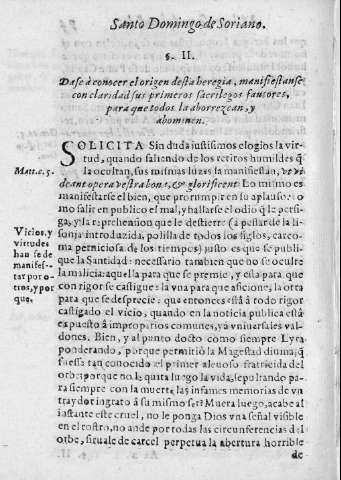 Santo Domingo de Soriano.
§. II.
Dase à conocer el origen desta heregia, manifiestanse
con claridad sus primeros sacrilegos fautores,
para que todos la aborrezcan, y
abominen.
SOLICITA Sin duda justissimos elogios la vir-
tud, quando saliendo de los retiros humildes q̃
la ocultan, sus mismas luzes la manifiestan, vt vi
deant opera vestra bona, & glorificent. Lo mismo es
manifestarse el bien, que prorrumpir en su aplauso: co
mo salir en publico el mal, y hallarse el odio q̃ le persi-
ga, y la reprehension que le destierre (à pesar de la li-
sonja introducida, polilla de todos los siglos, carco-
ma perniciosa de los tiempos) justo es que se publi-
que la Santidad: necessario tambien que no se oculte
la malicia: aquella para que se premie, y esta para que
con rigor se castigue: la vna para que aficione, la otra
para que se desprecie: que entonces està à todo rigor
castigado el vicio, quando en la noticia publica està
expuesto à improperios comunes, yà vniuersales val-
dones. Bien, y al punto docto como siempre Lyra
ponderando, porque permitiò la Magestad diuina, q̃
fuesse tan conocido el primer aleuoso fratricida del
orbe: porque no le quita luego la vida, sepultando pa-
ra siempre con la muerte, las infames memorias de vn
traydor ingrato à su mismo ser? Muera luego, acabe al
instante este cruel, no le ponga Dios vna señal visible
en el rostro, no ande por todas las circunferencias del
orbe, siruale de carcel perpetua la abertura horrible
de
Matt. c. 5.
Vicios, y
virtudes
han se de
manifes-
tar por o-
tros, y por
que.